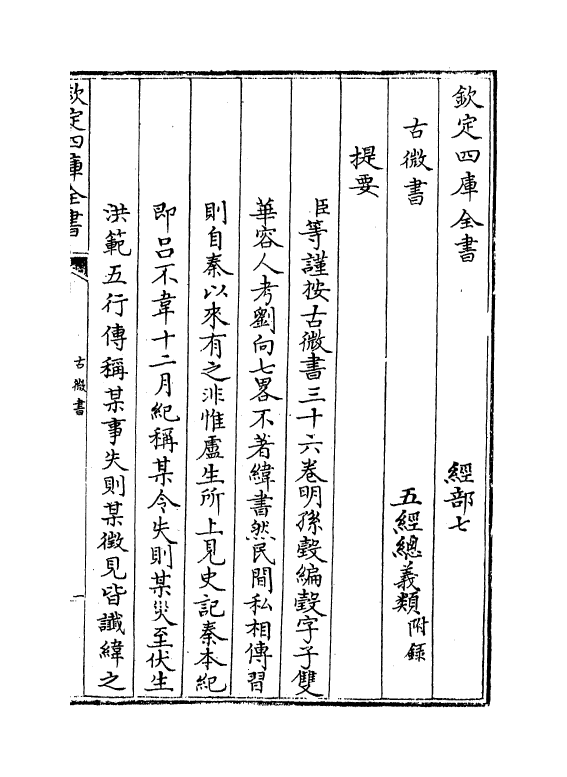 欽定四庫全書 經部七
古微書 五經總義類附録
提要
臣等謹按古微書三十六卷明孫瑴編瑴字子雙
華容人考劉向七畧不著緯書然民間私相傳習
則自秦以來有之非惟盧生所上見史記秦本紀
即吕不韋十二月紀稱某令失則某災至伏生
洪範五行傳稱某事失則某徵見皆讖緯之
欽定四庫全書
古微書
一